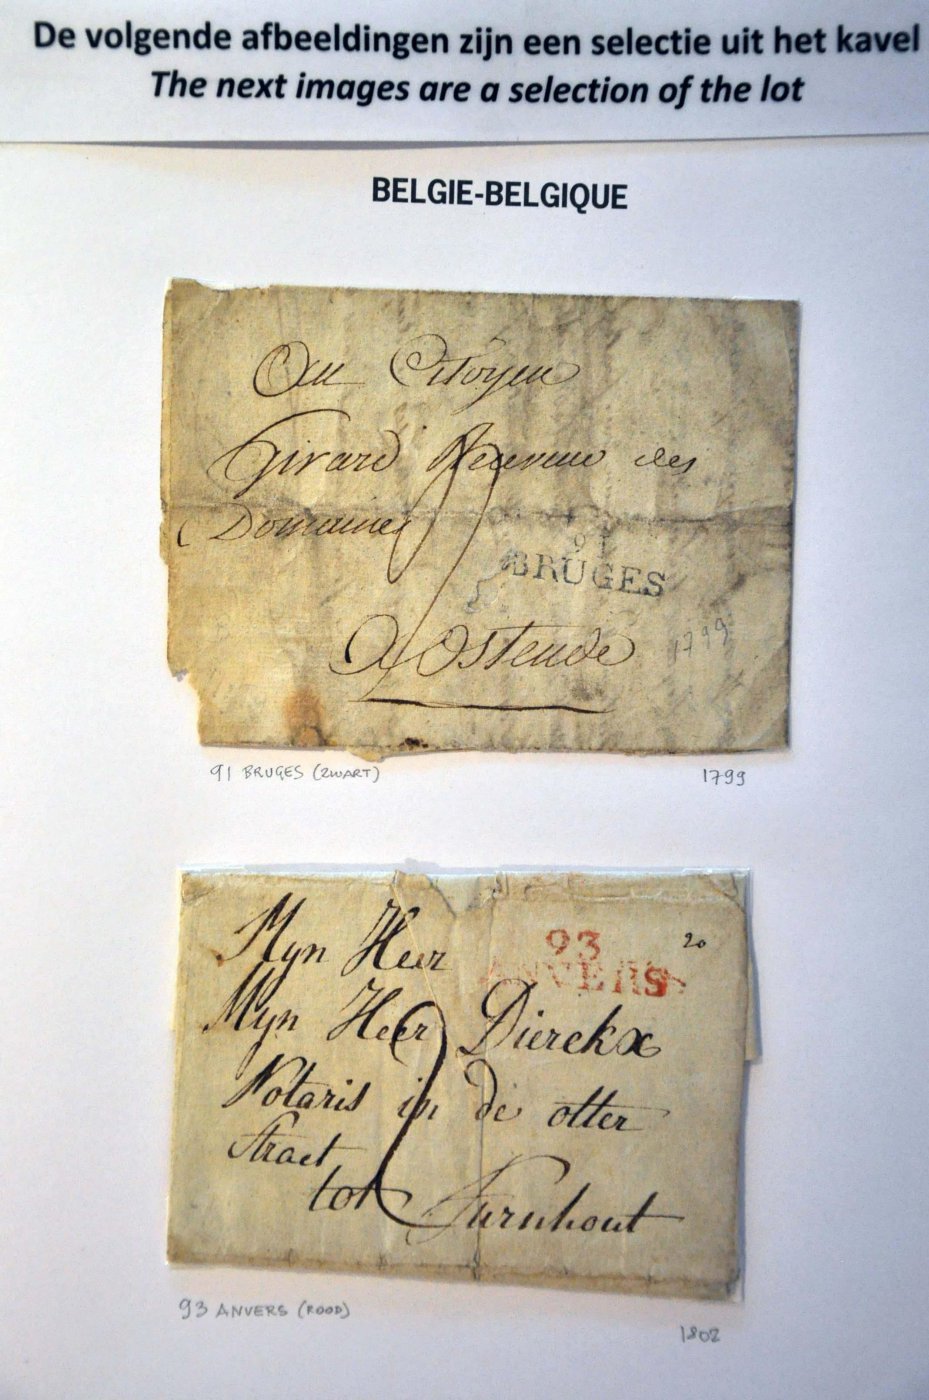 De volgende afbeeldingen zijn een selectie uit het kavel
The next images are a selection of the lot
BELGIE-BELGIQUE
Au Citoyen
Girard Receveur des
Domaines
91
BRUGES
a Ostende
1799
91 BRUGES (ZWART)
1799
93
ANVERS
20
Myn Heer
Myn Heer Dierckx
Notaris in de otter
straet
tot Turnhout
93 ANVERS (ROOD)
1802